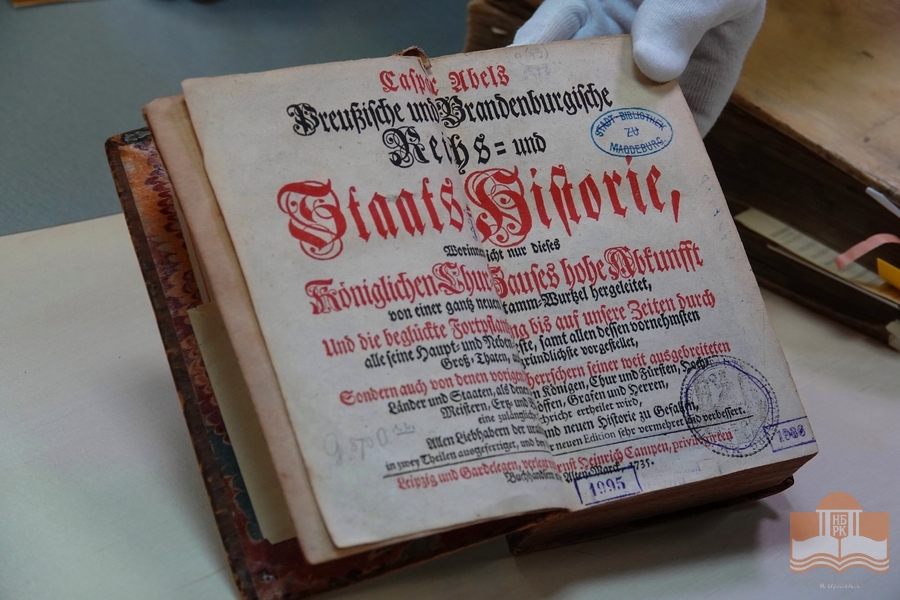 Caspar Abels
Preußische und Brandenburgische
Reichs- und
Staats Historie,
Worinnen nicht nur dieses
Königlichen Chur Hauses hohe Abkunfft
von einer gantz neuen Stamm-Wurtzel hergeleitet,
Und die beglückte Fortpflantzung bis auf unsere Zeiten durch
alle seine Haupt- und Neben-Äste, samt allen dessen vornehmsten
Groß-Thaten, auf gründlichste vorgestellet,
Sondern auch von denen vorigen Herrschern seiner weit ausgebreiteten
Länder und Staaten, als denen Königen, Chur und Fürsten, Hoch-
Meistern, Ertz- und Bischöffen, Grafen und Herren,
eine zulängliche Nachricht ertheilet wird,
Allen Liebhabern der und neuen Historie zu Gefallen,
in zwey Theilen ausgefertiget, und bey neuen Edition sehr vermehret und verbessert.
Leipzig und Gardelegen, verlegts Ernst Heinrich Campen, privilegirten
Buchhändlern 1735.
STADT-BIBLIOTHEK
ZU
MAGDEBURG
1995
1988
НБ
РК